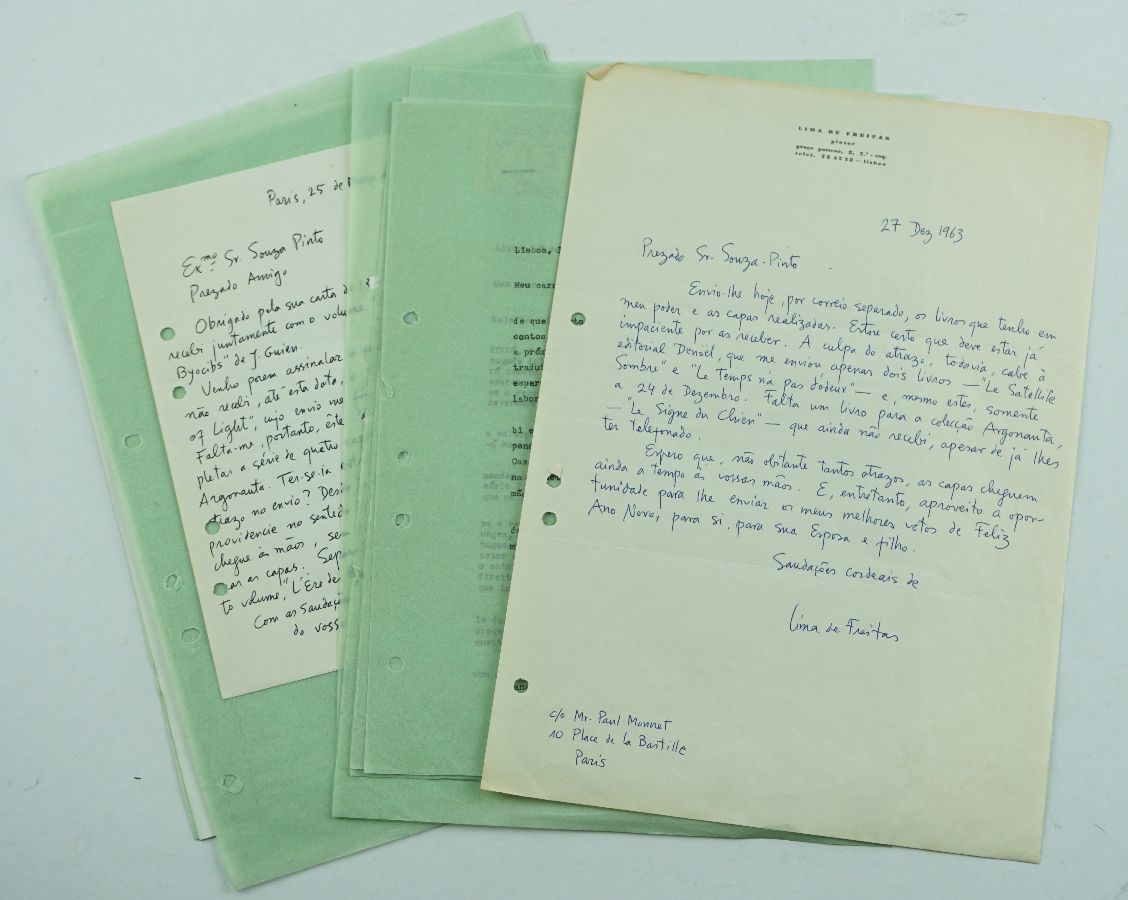 Paris, 25 de
Exmo Sr. Souza Pinto
Prezado Amigo
Obrigado pela sua carta de
recebi juntamente com o volu
Byocibs" de J. Guien.
Venho porem assinalar
não recebi, até esta data,
of Light", cujo envio me
Falta-me, portanto, êste
pletar a série de quatro
Argonauta. Ter-se-ia
atrazo no envio? Desi
providencie no sentid
chegue às mãos, se
ar as capas. Sep
to volume, "L'Ère de
Com as Saudaç
do voss
Lisboa,
Meu car
de que
contos
a próx
tradut
espero
labor
bi e
pens
Gas
na
mão
LIMA DE FREITAS
pintor
praça pasteur, 2, 7.º-esq.
telef. 724712 - lisboa
27 Dez 1963
Prezado Sr. Souza-Pinto
Envio-lhe hoje, por correio separado, os livros que tenho em
meu poder e as capas realizadas. Estou certo que deve estar já
impaciente por as receber. A culpa do atrazo, todavia, cabe à
editorial Denoël, que me enviou apenas dois livros — "Le Satellite
Sombre" e "Le Temps n'a pas d'odeur" — e, mesmo estes, somente
a 24 de Dezembro. Falta um livro para a colecção Argonauta,
— "Le Signe du Chien" — que ainda não recebi, apesar de já lhes
ter telefonado.
Espero que, não obstante tantos atrazos, as capas cheguem
ainda a tempo às vossas mãos. E, entretanto, aproveito a opor-
tunidade para lhe enviar os meus melhores votos de Feliz
Ano Novo, para si, para sua Esposa e filho.
Saudações cordeais de
Lima de Freitas
c/o Mr. Paul Monnet
10 Place de la Bastille
Paris